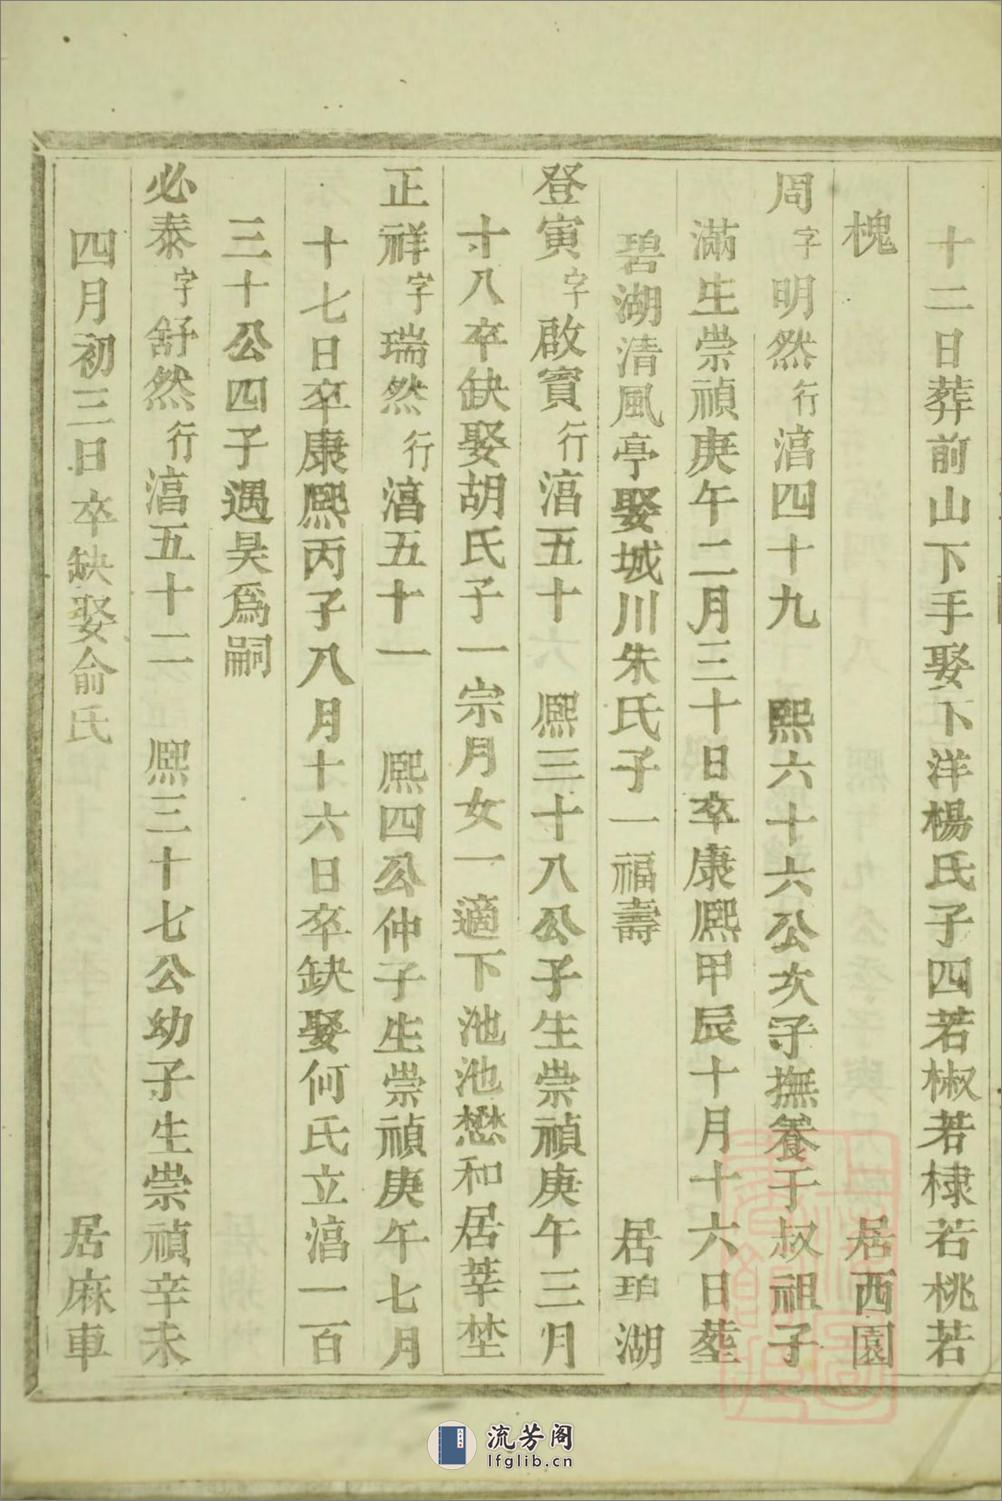 十二日葬前山下手娶下洋楊氏子四若椒若棣若桃若
槐 居西園
周字明然行湻四十九 熙六十六公次子撫養于叔祖子
滿生崇禎庚午二月三十日卒康熙甲辰十月十六日塟
碧湖清風亭娶城川朱氏子一福壽 居珀湖
登寅字啟賓行湻五十 熙三十八公子生崇禎庚午三月
十八卒缺娶胡氏子一宗月女一適下池池懋和居莘埜
正祥字瑞然行湻五十一 熙四公仲子生崇禎庚午七月
十七日卒康熙丙子八月十六日卒缺娶何氏立湻一百
三十公四子遇昊為嗣
必泰字舒然行湻五十二 熙三十七公幼子生崇禎辛未
四月初三日卒缺娶俞氏 居麻車
流芳阁
lfglib.cn